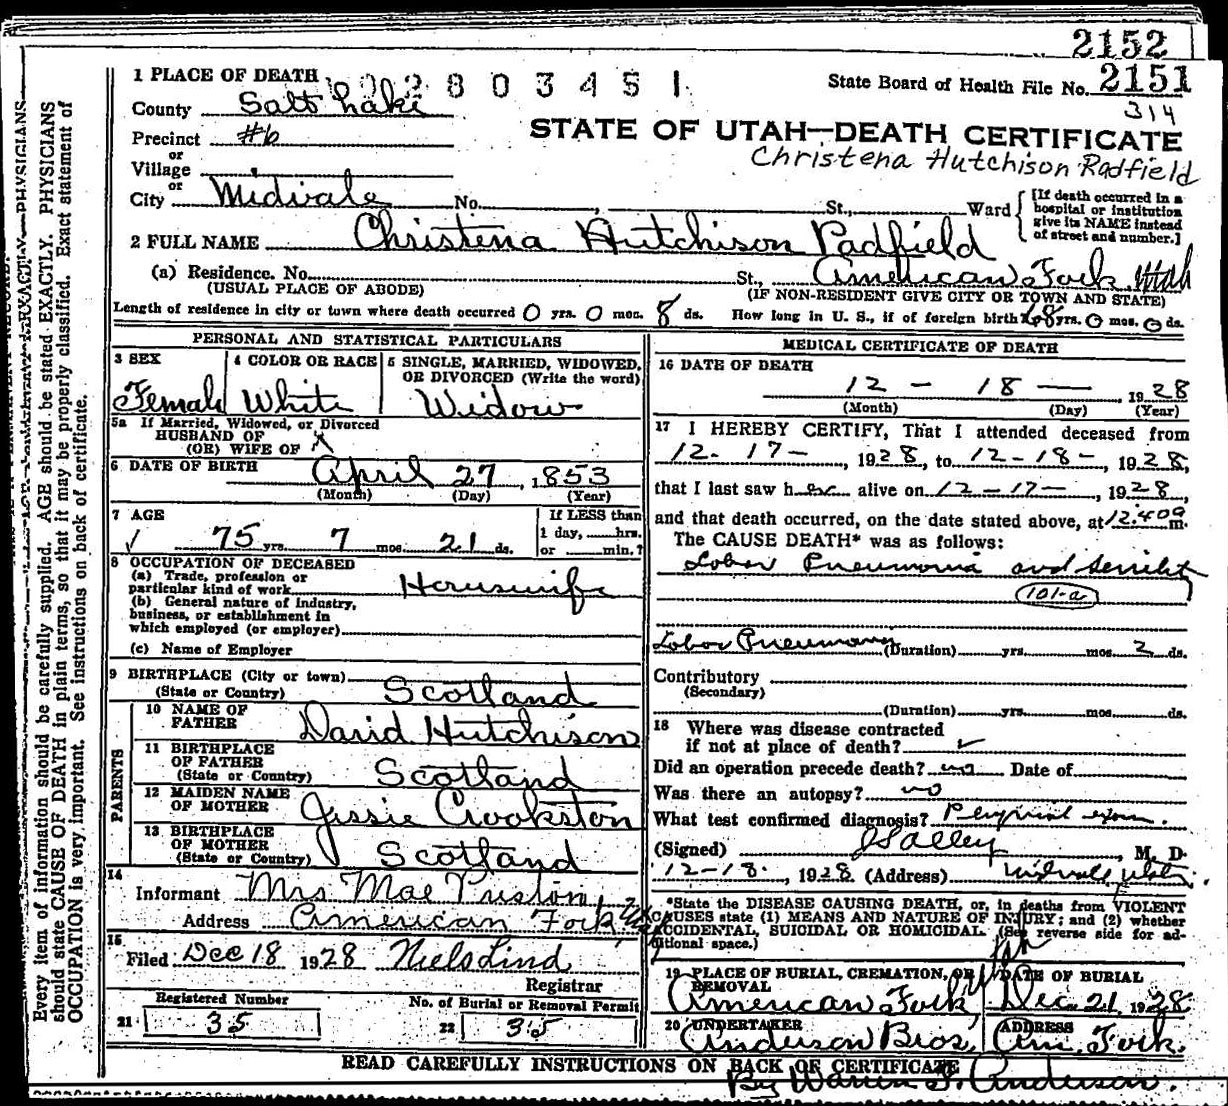 2152
1 PLACE OF DEATH 2803451 State Board of Health File No. 2151
314
County Salt Lake
Precinct #6
STATE OF UTAH—DEATH CERTIFICATE
or
Village
Christena Hutchison Padfield
or
City Midvale No. St., Ward
[If death occurred in a hospital or institution give its NAME instead of street and number.]
2 FULL NAME Christena Hutchison Padfield
(a) Residence. No. St., American Fork Utah
(USUAL PLACE OF ABODE) (IF NON-RESIDENT GIVE CITY OR TOWN AND STATE)
Length of residence in city or town where death occurred 0 yrs. 0 mos. 8 ds. How long in U. S., if of foreign birth? 68 yrs. 0 mos. 0 ds.
PERSONAL AND STATISTICAL PARTICULARS
3 SEX
Female
4 COLOR OR RACE
White
5 SINGLE, MARRIED, WIDOWED, OR DIVORCED (Write the word)
Widow
5a If Married, Widowed, or Divorced
HUSBAND OF
(OR) WIFE OF X
6 DATE OF BIRTH April 27, 1853
(Month) (Day) (Year)
7 AGE
75 yrs. 7 mos. 21 ds.
If LESS than
1 day, hrs.
or min.?
8 OCCUPATION OF DECEASED
(a) Trade, profession or
particular kind of work Housewife
(b) General nature of industry,
business, or establishment in
which employed (or employer)
(c) Name of Employer
9 BIRTHPLACE (City or town)
(State or Country) Scotland
PARENTS
10 NAME OF
FATHER David Hutchison
11 BIRTHPLACE
OF FATHER
(State or Country) Scotland
12 MAIDEN NAME
OF MOTHER Jessie Crookston
13 BIRTHPLACE
OF MOTHER
(State or Country) Scotland
14
Informant Mrs Mae Preston,
Address American Fork,
15
Filed Dec 18 1928 Niels Lind
Registrar
Registered Number
21 35
No. of Burial or Removal Permit
22 35
MEDICAL CERTIFICATE OF DEATH
16 DATE OF DEATH
12 - 18 — 1928
(Month) (Day) (Year)
17 I HEREBY CERTIFY, That I attended deceased from
12-17-, 1928, to 12-18-, 1928,
that I last saw her alive on 12-17-, 1928,
and that death occurred, on the date stated above, at 12.40 m.
The CAUSE DEATH* was as follows:
Lobar Pneumonia and senility
101-a
Lobar Pneumonia (Duration) yrs. mos. 2 ds.
Contributory
(Secondary)
(Duration) yrs. mos. ds.
18 Where was disease contracted
if not at place of death? ✓
Did an operation precede death? no Date of
Was there an autopsy? no
What test confirmed diagnosis? Physical exam.
(Signed) , M. D.
12-18, 1928 (Address) Midvale Utah
*State the DISEASE CAUSING DEATH, or, in deaths from VIOLENT
CAUSES state (1) MEANS AND NATURE OF INJURY; and (2) whether
ACCIDENTAL, SUICIDAL OR HOMICIDAL. (See reverse side for ad-
ditional space.)
19 PLACE OF BURIAL, CREMATION, OR
REMOVAL
American Fork,
DATE OF BURIAL
Dec. 21, 1928
20 UNDERTAKER
Anderson Bros,
ADDRESS
Am. Fork.
READ CAREFULLY INSTRUCTIONS ON BACK OF CERTIFICATE
By Warren Anderson.
Every item of information should be carefully supplied. AGE should be stated EXACTLY. PHYSICIANS
should state CAUSE OF DEATH in plain terms, so that it may be properly classified. Exact statement of
OCCUPATION is very important. See instructions on back of certificate.